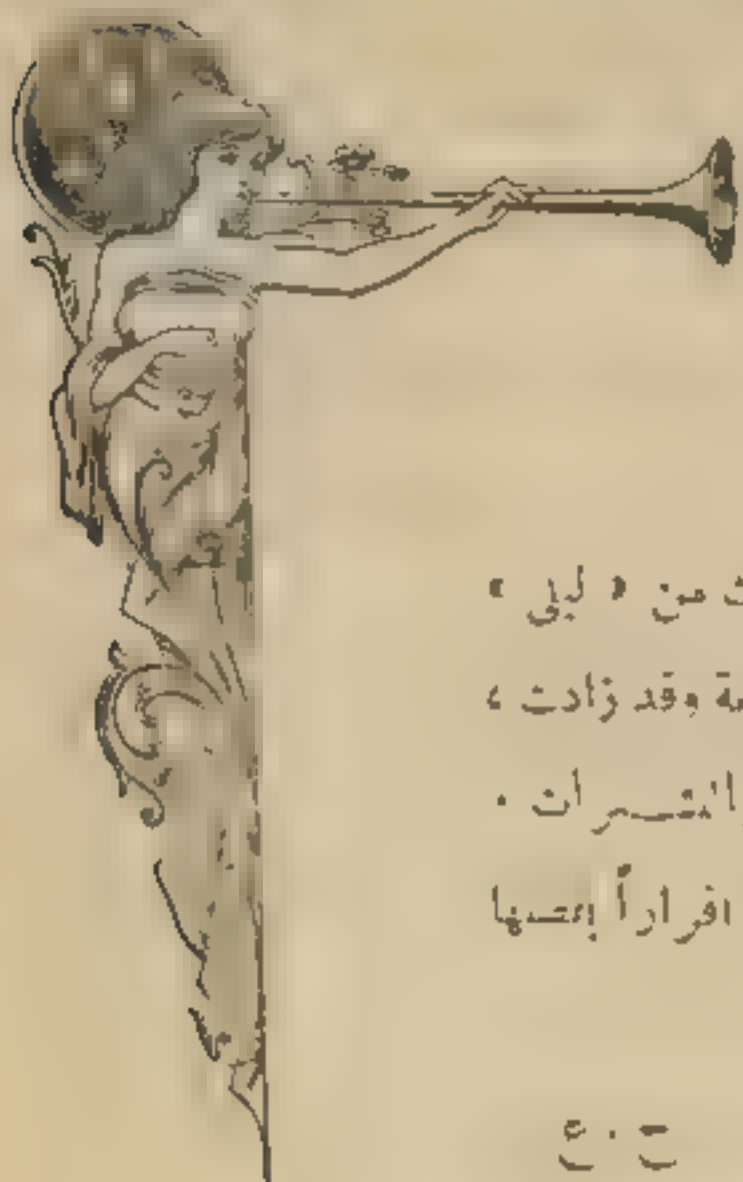 من « ليق »
وقد زادت ،
النشرات .
اقراراً بفضلها
ج . ع